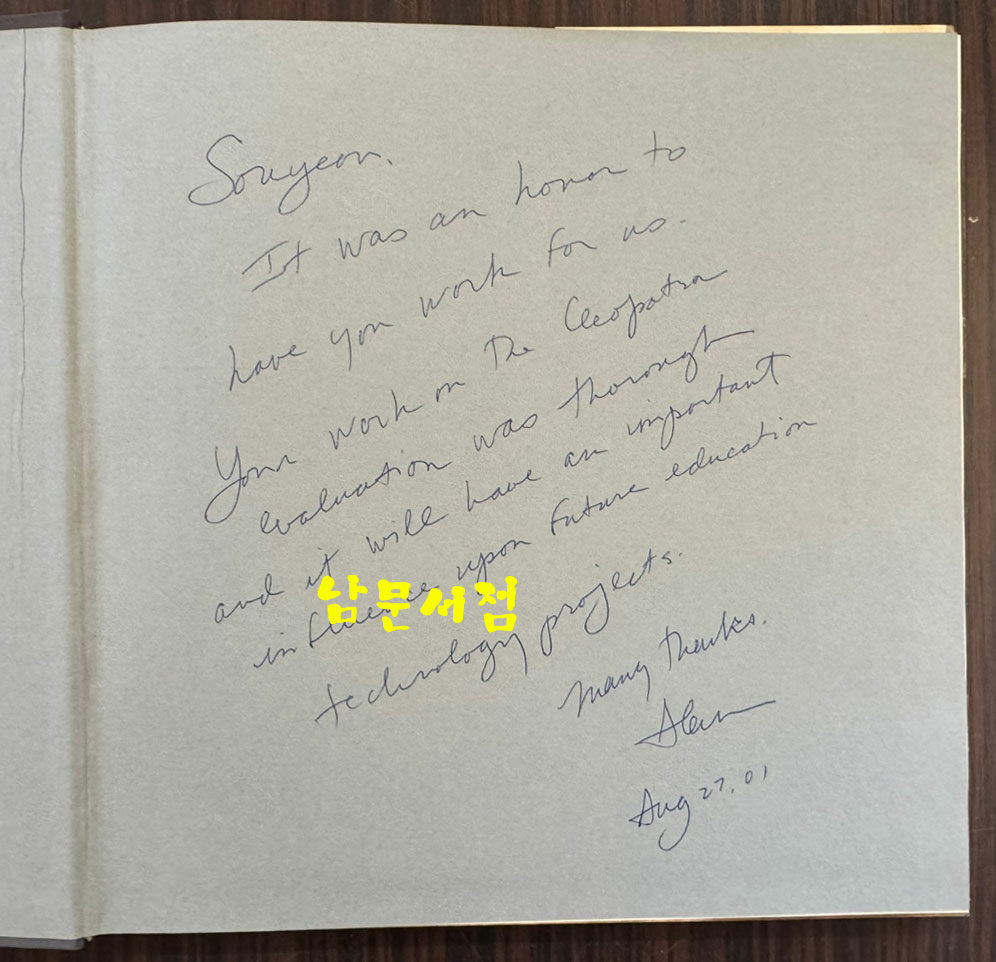 Sonyeon.
It was an honor to
have you work for us.
Your work on the Cleopatra
evaluation was thorough
and it will have an important
influence upon future education
technology projects.
Many thanks.
Alan
Aug 27, 01
남문서점